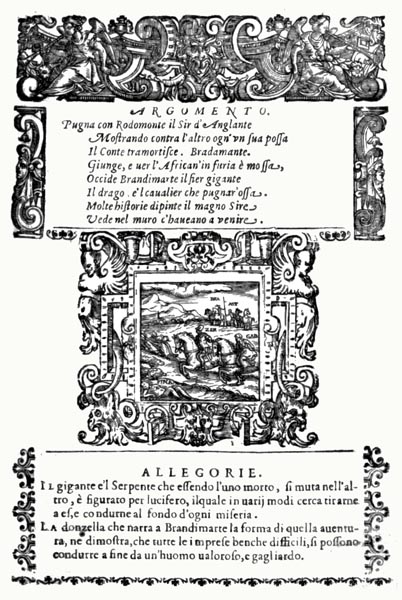 ARGOMENTO.
Pugna con Rodomonte il Sir d'Anglante
Mostrando contra l'altro ogn'vn sua possa
Il Conte tramortisce. Bradamante.
Giunge, e uer l'African'in furia è mossa,
Occide Brandimarte il fier gigante
Il drago. e'l caualier che pugnar'ossa.
Molte historie dipinte il magno Sire
Vede nel muro c'haueano a venire.
BRA
ALLEGORIE.
IL gigante e'l Serpente che essendo l'uno morto, si muta nell'al-
tro, è figurato per lucifero, ilquale in uarij modi cerca tirarne
a es,e condurne al fondo d'ogni miseria.
LA donzella che narra a Brandimarte la forma di quella auentu-
ra, ne dimostra, che tutte le imprese benche difficili, si possono
condurre a fine da un'huomo ualoroso, e gagliardo.